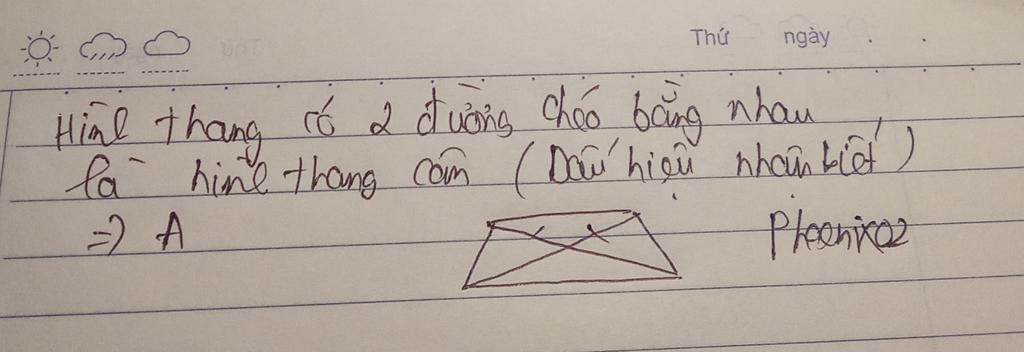 Thứ ngày . .
Hình thang có 2 đường chéo bằng nhau
là hình thang cân (Dấu hiệu nhận biết)
=> A
Phoenix02